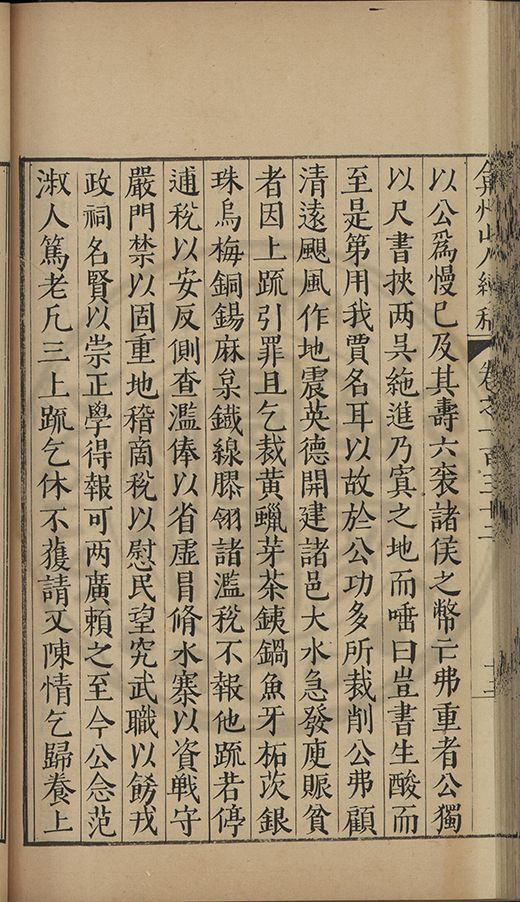 弇州山人續稿 卷之一百三十二 十三
以公爲慢已及其壽六袠諸侯之幣亡弗重者公獨
以尺書挾两吴絁進乃寘之地而唾曰豈書生酸而
至是第用我賈名耳以故於公功多所裁削公弗顧
清遠颶風作地震英德開建諸邑大水急發庾賑貧
者因上疏引罪且乞裁黄蠟芽茶銕鍋魚牙柘茨銀
珠烏梅銅錫麻枲鐵線膠翎諸濫稅不報他疏若停
逋稅以安反側查濫俸以省虛冒脩水寨以資戰守
嚴門禁以固重地稽商稅以慰民望究武職以餝戎
政祠名賢以崇正學得報可两廣頼之至今公念范
淑人篤老凢三上疏乞休不獲請又陳情乞歸養上